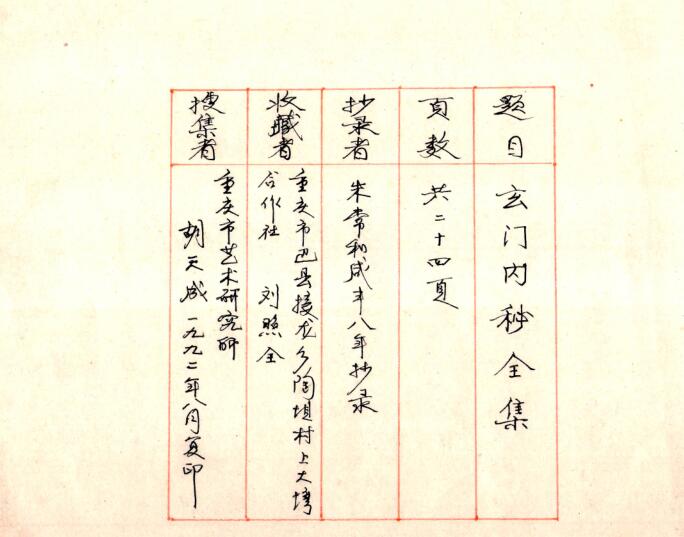 题目
玄门内秘全集
页数
共二十四頁
抄录者
朱常和咸丰八年抄录
收藏者
重庆市巴县接龙乡陶坝村上大塆
合作社 刘照全
搜集者
重庆市艺术研究所
胡天成一九九二年八月复印